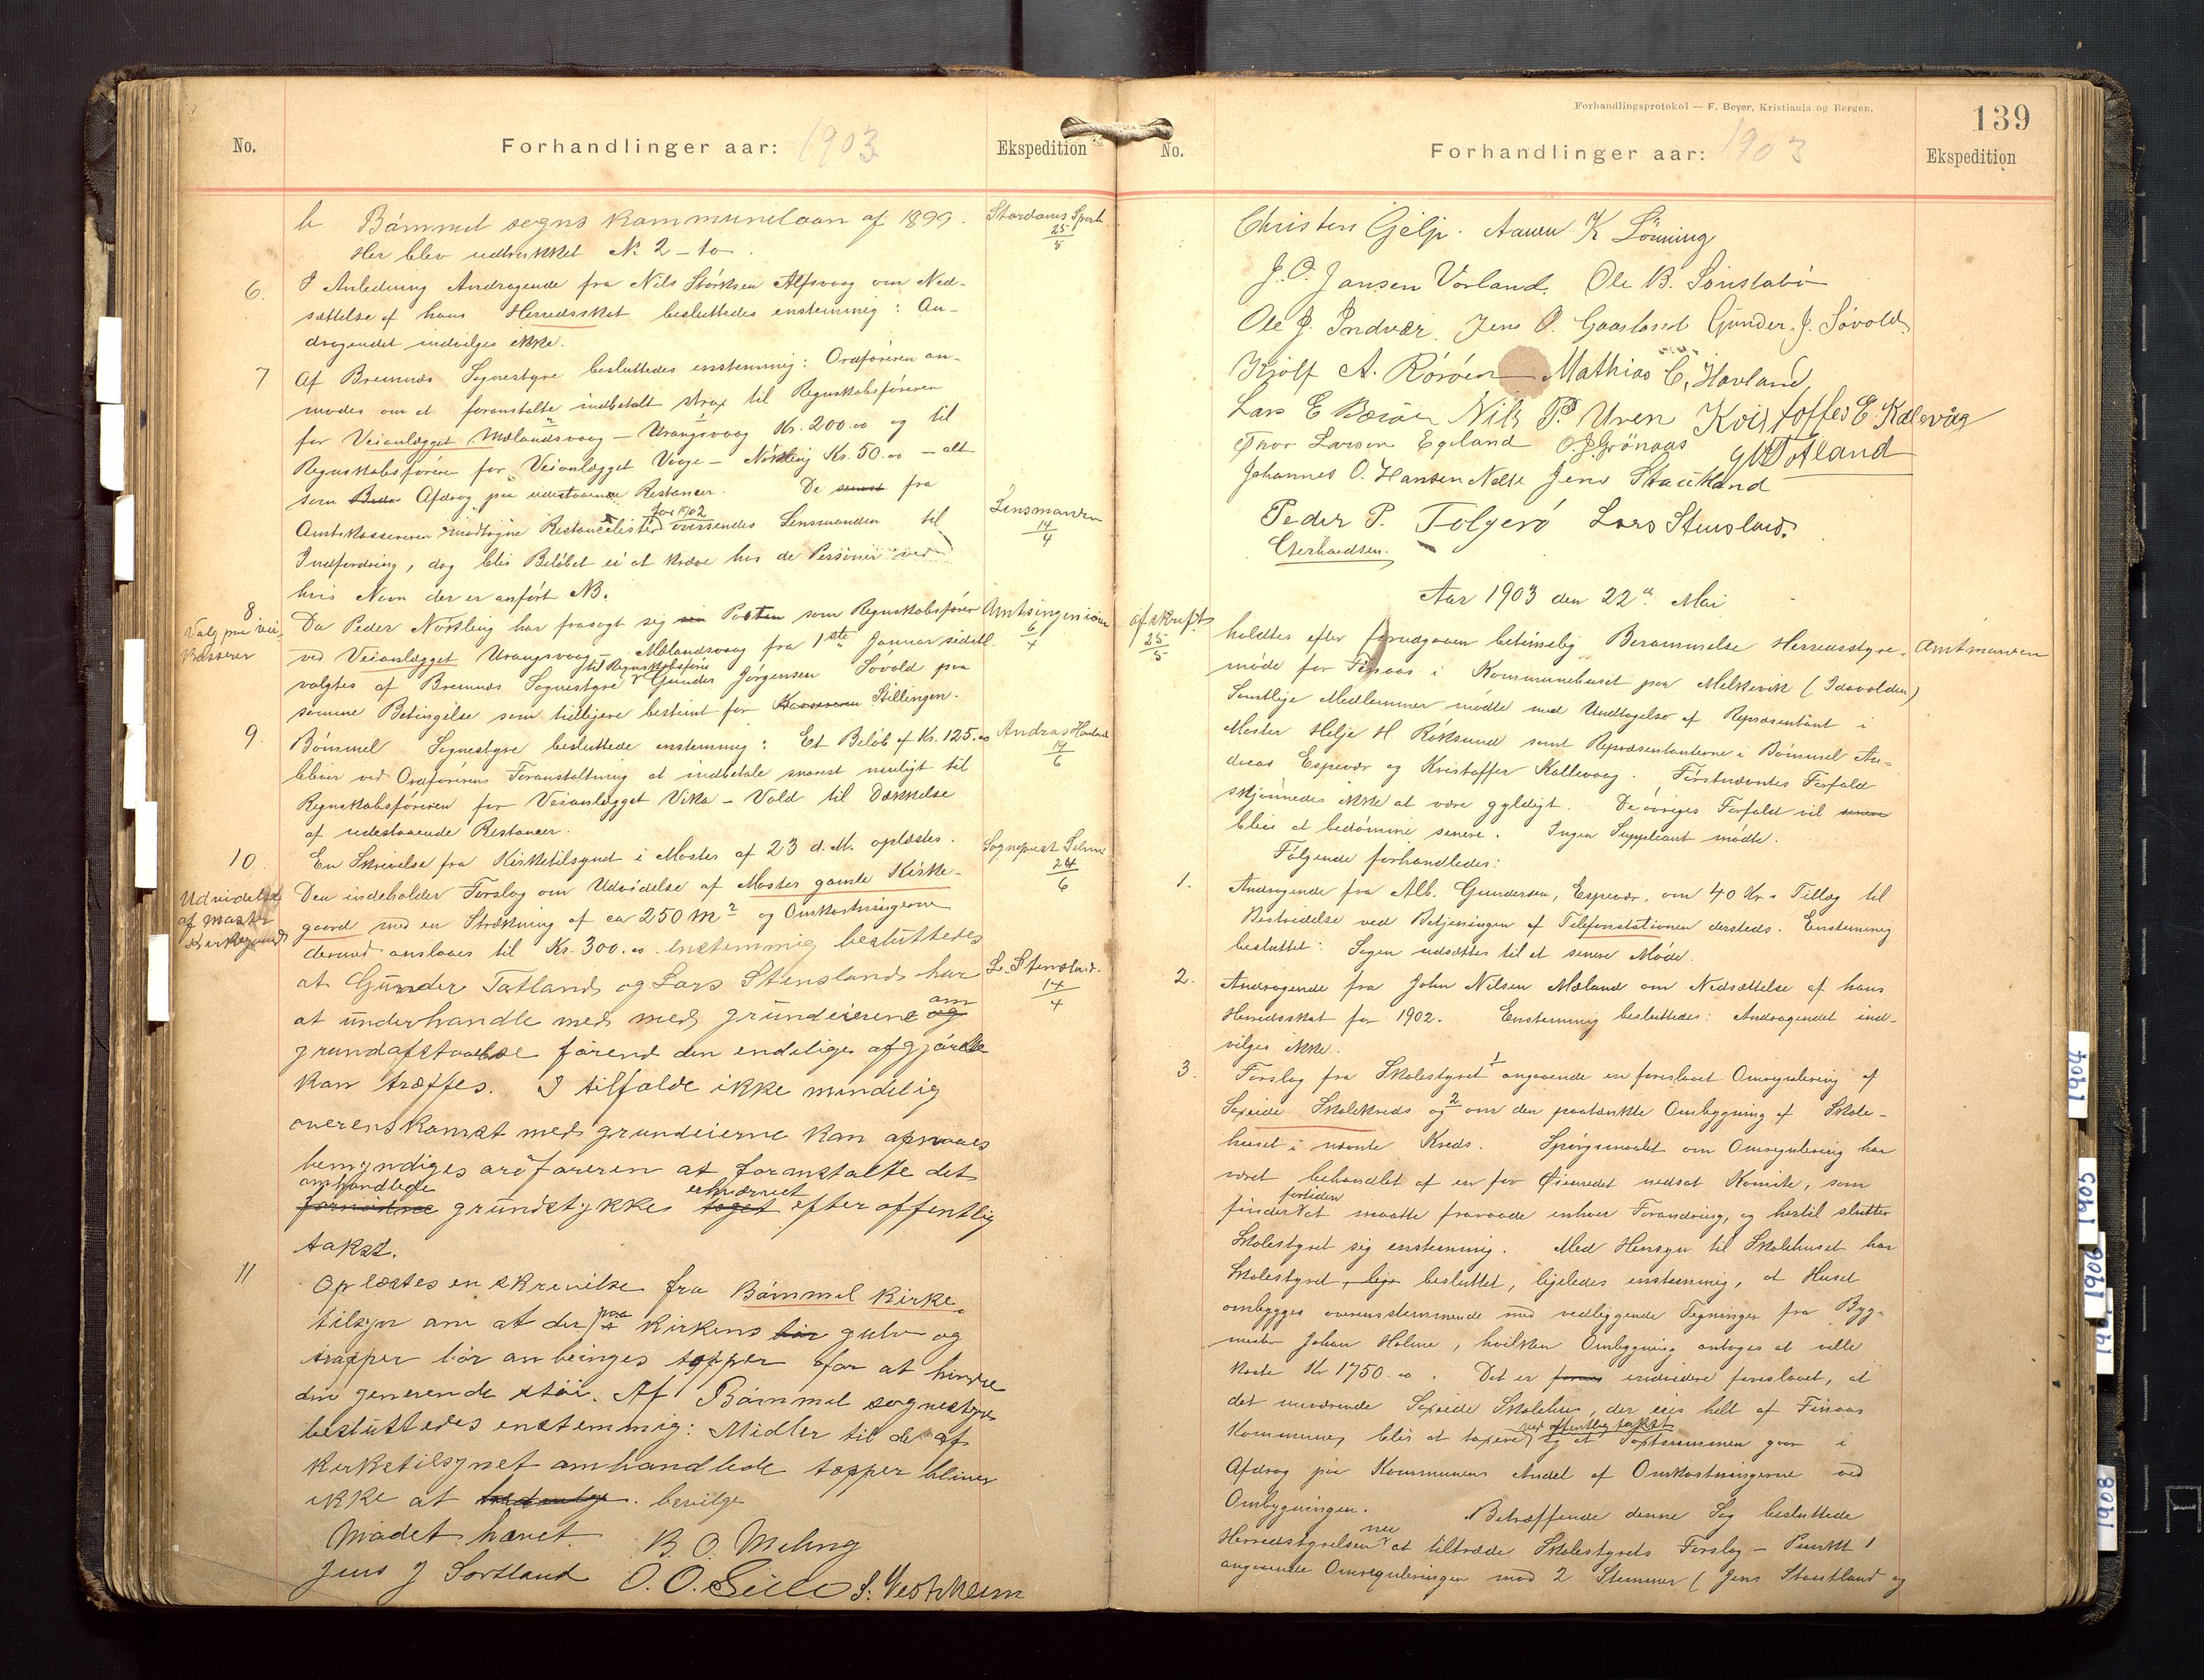 No.
Forhandlinger aar: 1903
Ekspedition
b Bömmel sogns kommunelaan af 1899.
Her blev udtrukket No 2 - to.
Stordøens Sparb
25/5
6. I Anledning Andragende fra Nils Störksen Alfsvaag om Ned-
sættelse af hans Herredsskat besluttedes enstemmig: An-
dragendet indvilges ikke.
7 Af Bremnes Sognestyre besluttedes enstemmig: Ordföreren an-
modes om at foranstalte indbetalt strax til Regnskabsföreren
for Veianlægget Mælandsvaag - Urangsvaag Kr. 200.00 og til
Regnskabsföreren for Veianlægget Vaage - Nökling Kr. 50.00 - alt
som Afdrag paa udestaaende Restancer. De senest fra
Amtskassereren modtagne Restancelister for 1902 oversendes Lensmanden til
Inddrivning, dog blir Belöbet ei at kræve hos de Personer ved
hvis Navn der er anfört NB.
Lensmanden
14/4
8
Valg paa vei-
kasserer
Da Peder Nökling har frasagt sig Posten som Regnskabsförer
ved Veianlægget Urangsvaag - Mælandsvaag fra 1ste Januar sidstl.
valgtes af Bremnes Sognestyre til Regnskabsförer Gunder Jörgensen Sövold paa
samme Betingelse som tidligere bestemt for Kassereren Stillingen.
Amtsingeniören
6/4
9. Bömmel Sognestyre besluttede enstemmig: Et Belöb af Kr. 125.00
bliver ved Ordförerens Foranstaltning at indbetale snarest muligt til
Regnskabsföreren for Veianlægget Vika - Vold til Dækkelse
af udestaaende Restancer.
Andras Hovland
19/6
10.
Udvidelse
af Moster
Kirkegaard
En Skrivelse fra Kirketilsynet i Moster af 23 d.M. oplæstes.
Den indeholder Forslag om Udvidelse af Moster gamle Kirke-
gaard med en Strækning af ca 250 m2 og Omkostningerne
derved anslaaes til Kr. 300.00. Enstemmig besluttedes
at Gunder Tatland og Lars Stensland har
at underhandle med med grundeierene og om
grundafstaaelse förend den endelige afgjörelse
kan træffes. I tilfælde ikke mindelig
overenskomst med grundeierne kan opnaaes
bemyndiges ordföreren at foranstalte det
omhandlede grundstykke taget erhvervet efter offentlig
takst.
Sogneprest
24/6
L. Stensland.
14/4
11 Oplæstes en skrivelse fra Bömmel kirke-
tilsyn om at der paa kirkens bör gulv og
trapper bör anbringes tæpper for at hindre
den generende stöi. Af Bömmel sognestyre
besluttedes enstemmig: Midler til de af
kirketilsynet omhandlede tæpper bliver
ikke at bevilge
Mödet hævet. B. O. Meling
Jens J Sortland O. O. Lillo S. Vestheim
Forhandlingsprotokol — F. Beyer, Kristiania og Bergen.
139
No.
Forhandlinger aar: 1903
Ekspedition
Christen Gjelp. Aamu K Lönning
J. O. Jansen Vorland. Ole B. Sönstabö
Ole J. Indvær. Jens O. Gaasland Gunder J. Sövold
Kjolf A. Rörven Mathias C. Havland
Lars E Nils P. Uren Kristoffer E. Kallevåg
Thor Larsen Egeland O. J. Grönaas G M Totland
Johannes O. Hansen Nalse Jens Stautland
Peder P. Folgerö Lars Stensland.
Gerhardsen.
Aar 1903 den 22de Mai
afskrift
25/5
holdtes efter forudgaaen betimelig Berammelse Herredsstyre-
möde for Finaas i Kommunehuset paa Melkevik (Idavolden)
Samtlige Medlemmer mödte med Undtagelse af Repræsentant i
Moster Helje H. Röksund samt Repræsentanterne i Bömmel An-
dreas Espevær og Kristoffer Kallevaag. Förstnævntes Forfald
skjönnedes ikke at være gyldigt. De övriges Forfald vil senere
blive at bedömme senere. Ingen Suppleant mödte.
Amtmanden
Fölgende forhandledes:
1. Andragende fra Alb. Gundersen, Espevær, om 40 Kr.s Tillæg til
Bestridelse ved Betjeningen af Telefonstationen dersteds. Enstemmig
besluttet: Sagen udsættes til et senere Möde.
2. Andragende fra John Nilsen Mæland om Nedsættelse af hans
Herredsskat for 1902. Enstemmig besluttedes: Andragendet ind-
vilges ikke.
3. Forslag fra Skolestyret 1 angaaende en foreslaaet Omregulering af
Sjeide Skolekreds og 2 om den paatænkte Ombygning af Skole-
huset i nævnte Kreds. Spörgsmaalet om Omregulering har
været behandlet af en for Öiemedet nedsat Komite, som
finder fortiden at maatte fraraade enhver Forandring, og hertil slutter
Skolestyret sig enstemmig. Med Hensyn til Skolehuset har
Skolestyret lige besluttet, ligeledes enstemmig, at Huset
ombygges overensstemmende med vedliggende Tegninger fra Byg-
mester Johan Holme, hvilken Ombygning antages at ville
koste Kr 1750.00. Det er endvidere foreslaaet, at
det nuværende Sjeide Skolehus, der eies helt af Finaas
Kommune, blir at taxere ved offentlig takst og at Taxtsummen gaar i
Afdrag paa Kommunens Andel af Omkostningerne ved
Ombygningen. Betræffende denne Sag besluttede
Herredsstyrelsen nu at tiltræde Skolestyrets Forslag - Punkt 1
angaaende Omreguleringen mod 2 Stemmer (Jens Stautland og
1904
1905
1906
1908